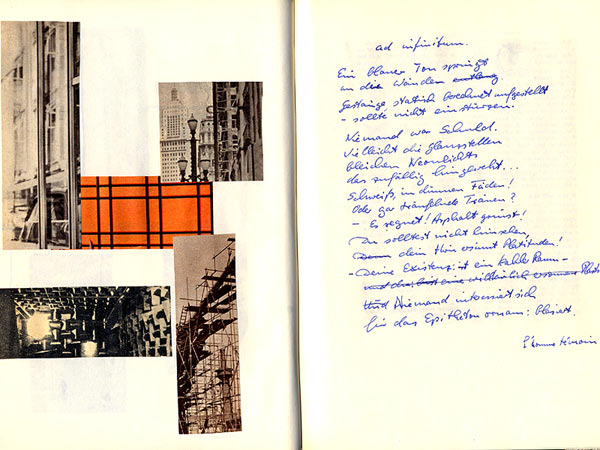 ad infinitum.
Ein blauer Ton springt
an den Wänden entlang
Gestänge, statisch berechnet aufgestellt
- sollte nicht einstürzen.
Niemand war Schuld.
Vielleicht die Glanzstellen
bleichen Neonlichts
das zufällig hinglotzt...
Schweiß, in dünnen Fäden!
Oder gar tränflende Tränen?
- Es regnet! Asphalt grinst!
Du solltest nicht hinsehen,
Denn dein Hirn ersinnt Platitüden!
- Deine Existenz ist ein kahler Raum -
und du bist eine willkürlich
Und Niemand interessiert sich
für das Epitheton ornans: blasiert.